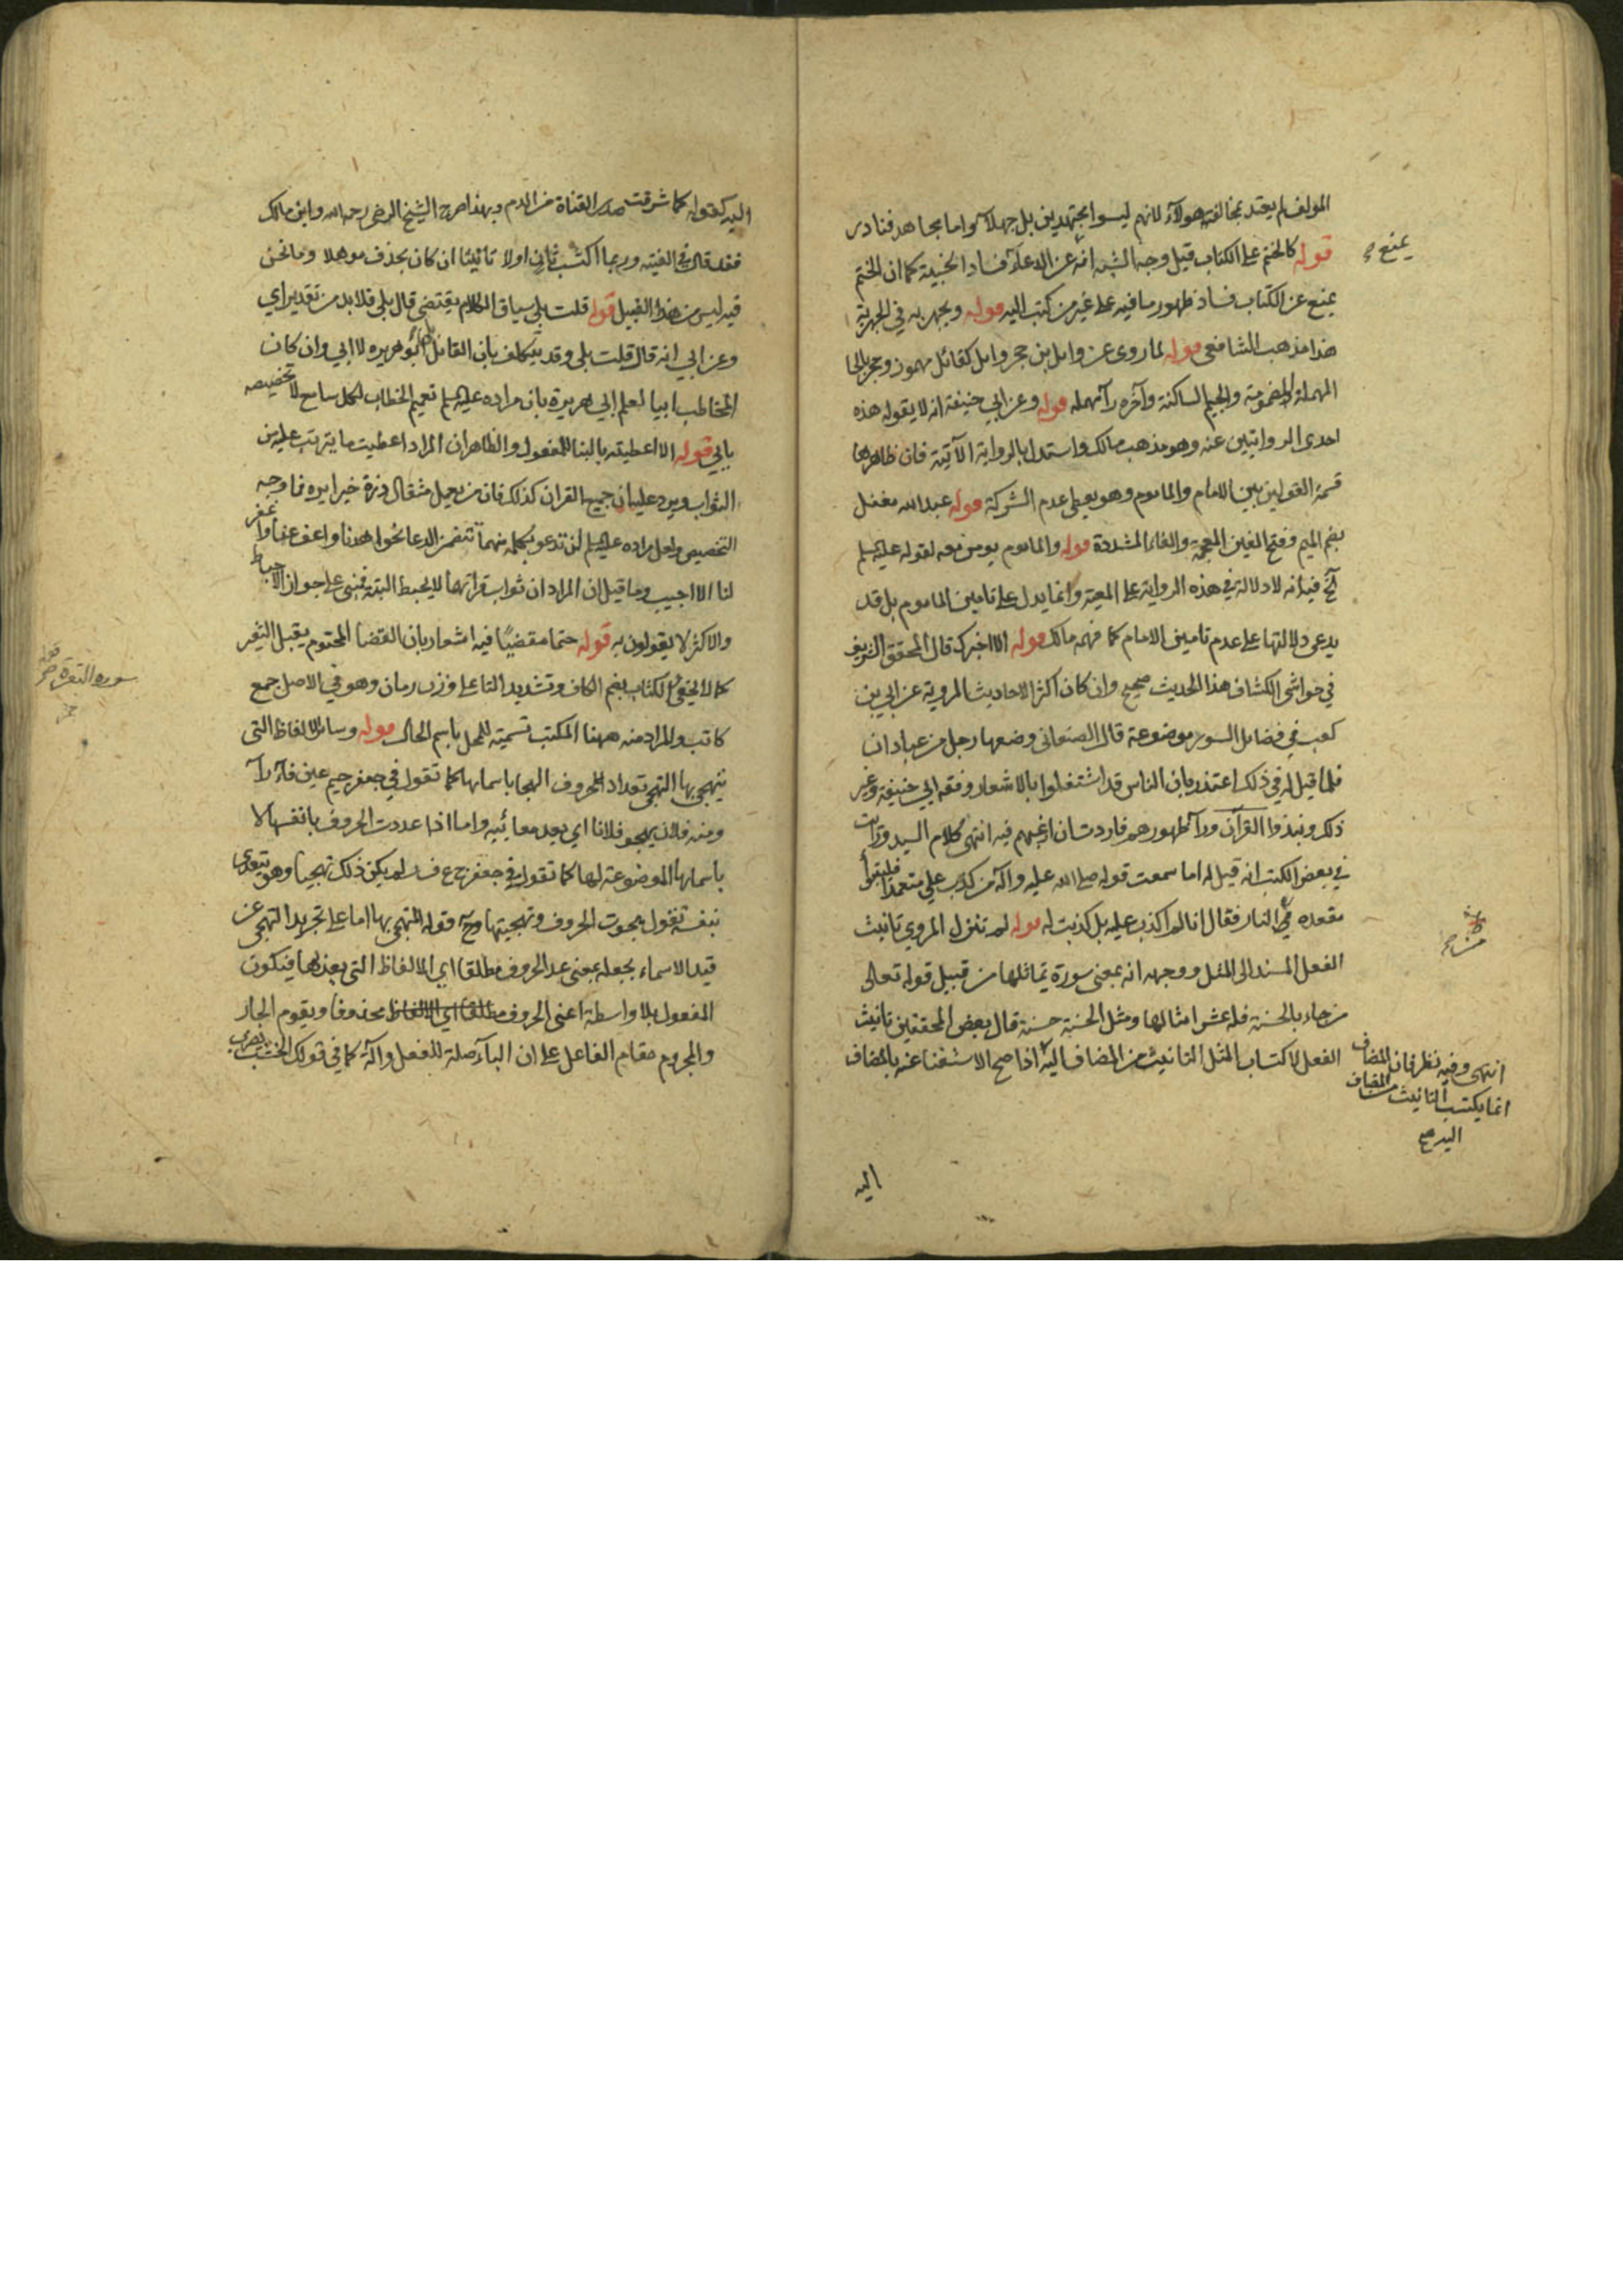 المولف لم يعتد بمخالفة هولآء لانهم ليسوا بمجتهدين بل جهلا واما مجاهد فنادر
قوله كالختم على الكتاب قيل وجه الشبه انه يمنع عن الدعآء فساد الخيبة كما ان الختم
يمنع عن الكتاب فساد ظهور ما فيه على غير من كتب اليه قوله ويجهر به في الجهرية
هذا مذهب الشافعي قوله لما روى عن وايل بن حجر وايل كقائل مهموز وحجر بالحا
المهملة المضمومة والجيم الساكنة وآخره رآ مهمله قوله وعن ابي حنيفة انه لا يقوله هذه
احدى الروايتين عنه وهو مذهب مالك واستدلا بالرواية الآتية فان ظاهرها
قسمة القولين بين الامام والماموم وهو يعطى عدم الشركة قوله عبد الله مغفل
بضم الميم وفتح الغين المعجمة والفاء المشددة قوله والماموم يومن معه لقوله عليه السلم
الخ فيه انه لا دلالة في هذه الرواية على المعية وانما يدل على تامين الماموم بل قد
يدعى دلالتها على عدم تامين الامام كما فهمه مالك قوله الا اخبرك قال المحقق الشريف
في حواشي الكشاف هذا الحديث صحيح وان كان اكثر الاحاديث المروية عن ابي بن
كعب في فضايل السور موضوعة قال الصنعانى وضعها رجل من عبادان
فلما قيل له في ذلك اعتذر بان الناس قد اشتغلوا بالاشعار وفقه ابي حنيفة وغير
ذلك ونبذوا القرآن ورآ ظهورهم فاردت ان ارغبهم فيه انتهى كلام السيد ورايت
في بعض الكتب انه قيل له اما سمعت قوله صلى الله عليه واله من كذب علي متعمدا فليتبوأ
مقعده من النار فقال انا لم اكذب عليه بل كذبت له قوله لم تنزل المروي تانيث
الفعل المسند الى المثل ووجهه انه بمعنى سورة تماثلها من قبيل قوله تعالى
من جاء بالحسنة فله عشر امثالها ومثل الحسنة حسنة قال بعض المحققين تانيث
الفعل لاكتساب المثل التانيث من المضاف اليه اذا صح الاستغنا عنه بالمضاف
يمنع صح
من صح
انتهى وفيه نظر فان المضاف
انما يكتسب التانيث من المضاف
اليه صح
اليه
اليه كقوله كما شرقت صدر القناة من الدم وبهذا صرح الشيخ الرضي رحمه الله وابن مالك
فقد قال في الفيته وربما اكتسب ثان اولا تانيثا ان كان بحذف موهلا وما نحن
فيه ليس من هذا القبيل قوله قلت بلى سياق الكلام يقتضي قال بلى فلا بد من تقدير اي
وعن ابي انه قال قلت بلى وقد يتكلف بان القائل ابو هريره لا ابي وان كان
المخاطب ابيا لعلم ابي هريرة بان مراده عليه السلم تعميم الخطاب لكل سامع لا تخصيصه
بابي قوله الا اعطيته بالبنا للمفعول والظاهر ان المراد اعطيت ما يترتب عليه من
الثواب ويرد عليه ان جميع القران كذلك فان من يعمل مثقال ذرة خيرا يره فما وجه
التخصيص ولعل مراده عليه السلم لن تدعو بكلمة منهما تتضمن الدعا نحو اهدنا واعف عنا واغفر
لنا الا اجيب وما قيل ان المراد ان ثواب قراتهما لا يحبط البتة فمبني على جواز الاحباط
والاكثر لا يقولون به قوله حتما مقضيا فيه اشعار بان القضا المحتوم يقبل التغير
كما لا يخفى الكتاب بضم الكاف وتشديد التا على وزن رمان وهو في الاصل جمع
كاتب والمراد منه ههنا المكتب تسمية للمحل باسم الحال قوله وسائر الالفاظ التى
يتهجى بها التهجى تعداد الحروف الهجا باسمايها كما تقول في جعفر جيم عين فآء رآ
ومنه فلان يهجو فلانا اي يعد معائبه واما اذا عددت الحروف بانفسها لا
باسمايها الموضوعة لها كما تقول في جعفر ج ع ف ر لم يكن ذلك تهجيا وهو يتعدى
بنفسه تقول هجوت الحروف وتهجيتها وح قوله المتهجى بها اما على تجريد التهجى عن
قيد الاسماء بجعله بمعنى عد الحروف مطلقا اي الالفاظ التى يعد بها فيكون
المفعول بلا واسطة اعنى الحروف محذوفا ويقوم الجار
والمجرور مقام الفاعل على ان البآء صلة للفعل والة كما في قولك
سورة البقرة